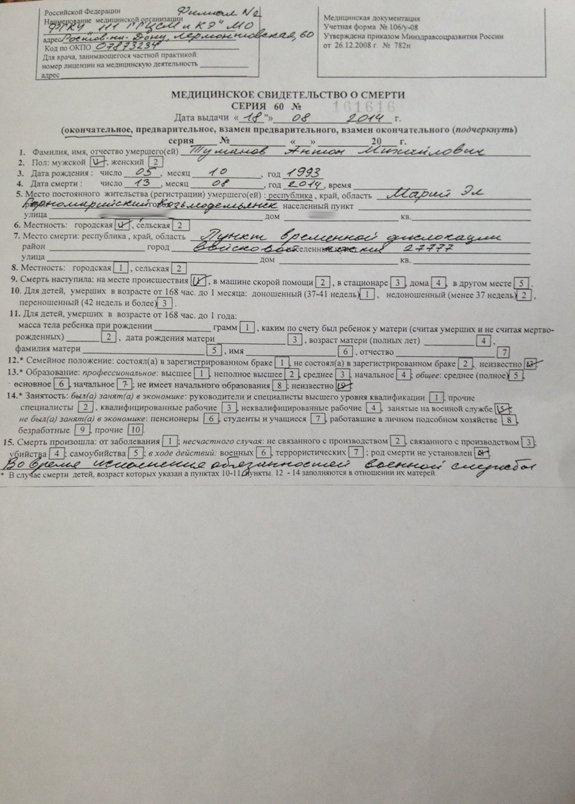 Российской Федерации
Филиал №2
Наименование медицинской организации
ФГКУ "111 ГГЦСМ и КЭ" МО
адрес Ростов-на-Дону, Лермонтовская, 60
Код по ОКПО 07873234
Для врача, занимающегося частной практикой
номер лицензии на медицинскую деятельность
адрес
Медицинская документация
Учетная форма № 106/у-08
Утверждена приказом Минздравсоцразвития России
от 26.12.2008 г. № 782н
МЕДИЦИНСКОЕ СВИДЕТЕЛЬСТВО О СМЕРТИ
СЕРИЯ 60 № 161616
Дата выдачи « 18 » 08 2014 г.
(окончательное, предварительное, взамен предварительного, взамен окончательного (подчеркнуть)
серия № « » 20 г.
1. Фамилия, имя, отчество умершего(ей) Туманов Антон Михайлович
2. Пол: мужской 1, женский 2
3. Дата рождения: число 05, месяц 10, год 1993
4. Дата смерти: число 13, месяц 08, год 2014, время
5. Место постоянного жительства (регистрации) умершего(ей): республика, край, область Марий Эл
Горномарийский Козьмодемьянск населенный пункт
улица дом кв.
6. Местность: городская 1, сельская 2
7. Место смерти: республика, край, область Пункт временной дислокации
район город войсковой части 27777
улица дом кв.
8. Местность: городская 1, сельская 2
9. Смерть наступила: на месте происшествия 1, в машине скорой помощи 2, в стационаре 3, дома 4, в другом месте 5.
10. Для детей, умерших в возрасте от 168 час. до 1 месяца: доношенный (37-41 недель) 1, недоношенный (менее 37 недель) 2,
переношенный (42 недель и более) 3.
11. Для детей, умерших в возрасте от 168 час. до 1 года:
масса тела ребенка при рождении грамм 1, каким по счету был ребенок у матери (считая умерших и не считая мертво-
рожденных) 2, дата рождения матери 3, возраст матери (полных лет) 4,
фамилия матери 5, имя 6, отчество 7
12.* Семейное положение: состоял(а) в зарегистрированном браке 1, не состоял(а) в зарегистрированном браке 2, неизвестно 3
13.* Образование: профессиональное: высшее 1, неполное высшее 2, среднее 3, начальное 4; общее: среднее (полное) 5,
основное 6, начальное 7, не имеет начального образования 8; неизвестно 9
14.* Занятость: был(а) занят(а) в экономике: руководители и специалисты высшего уровня квалификации 1, прочие
специалисты 2, квалифицированные рабочие 3, неквалифицированные рабочие 4, занятые на военной службе 5;
не был(а) занят(а) в экономике: пенсионеры 6, студенты и учащиеся 7, работавшие в личном подсобном хозяйстве 8,
безработные 9, прочие 10.
15. Смерть произошла: от заболевания 1; несчастного случая: не связанного с производством 2, связанного с производством 3;
убийства 4; самоубийства 5; в ходе действий: военных 6, террористических 7; род смерти не установлен 8.
Во время исполнение обязанностей военной службы
* В случае смерти детей, возраст которых указан а пунктах 10-11, пункты. 12 - 14 заполняются в отношении их матерей.